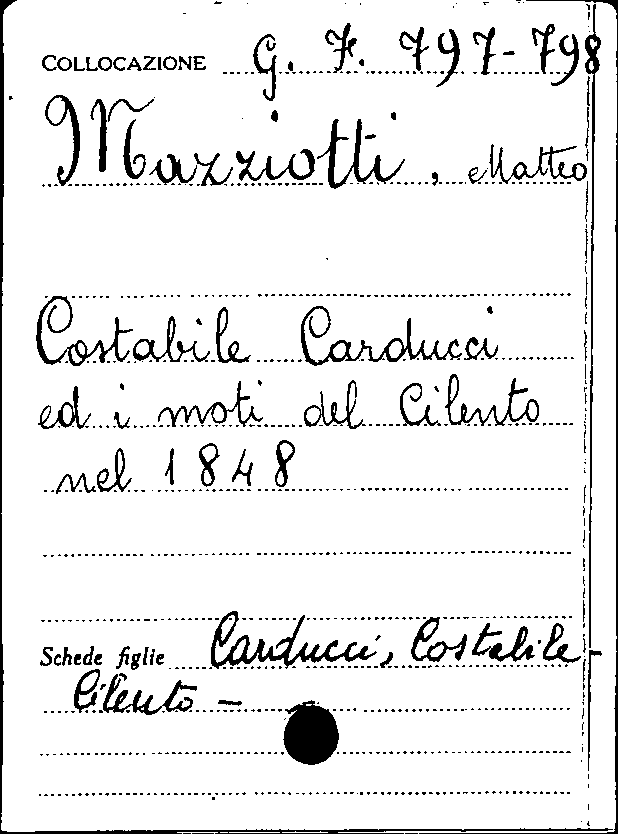 COLLOCAZIONE G. F. 797-798
Mazziotti, Matteo
Costabile Carducci
ed i moti del Cilento
nel 1848
Schede figlie Carducci, Costabile -
Cilento -